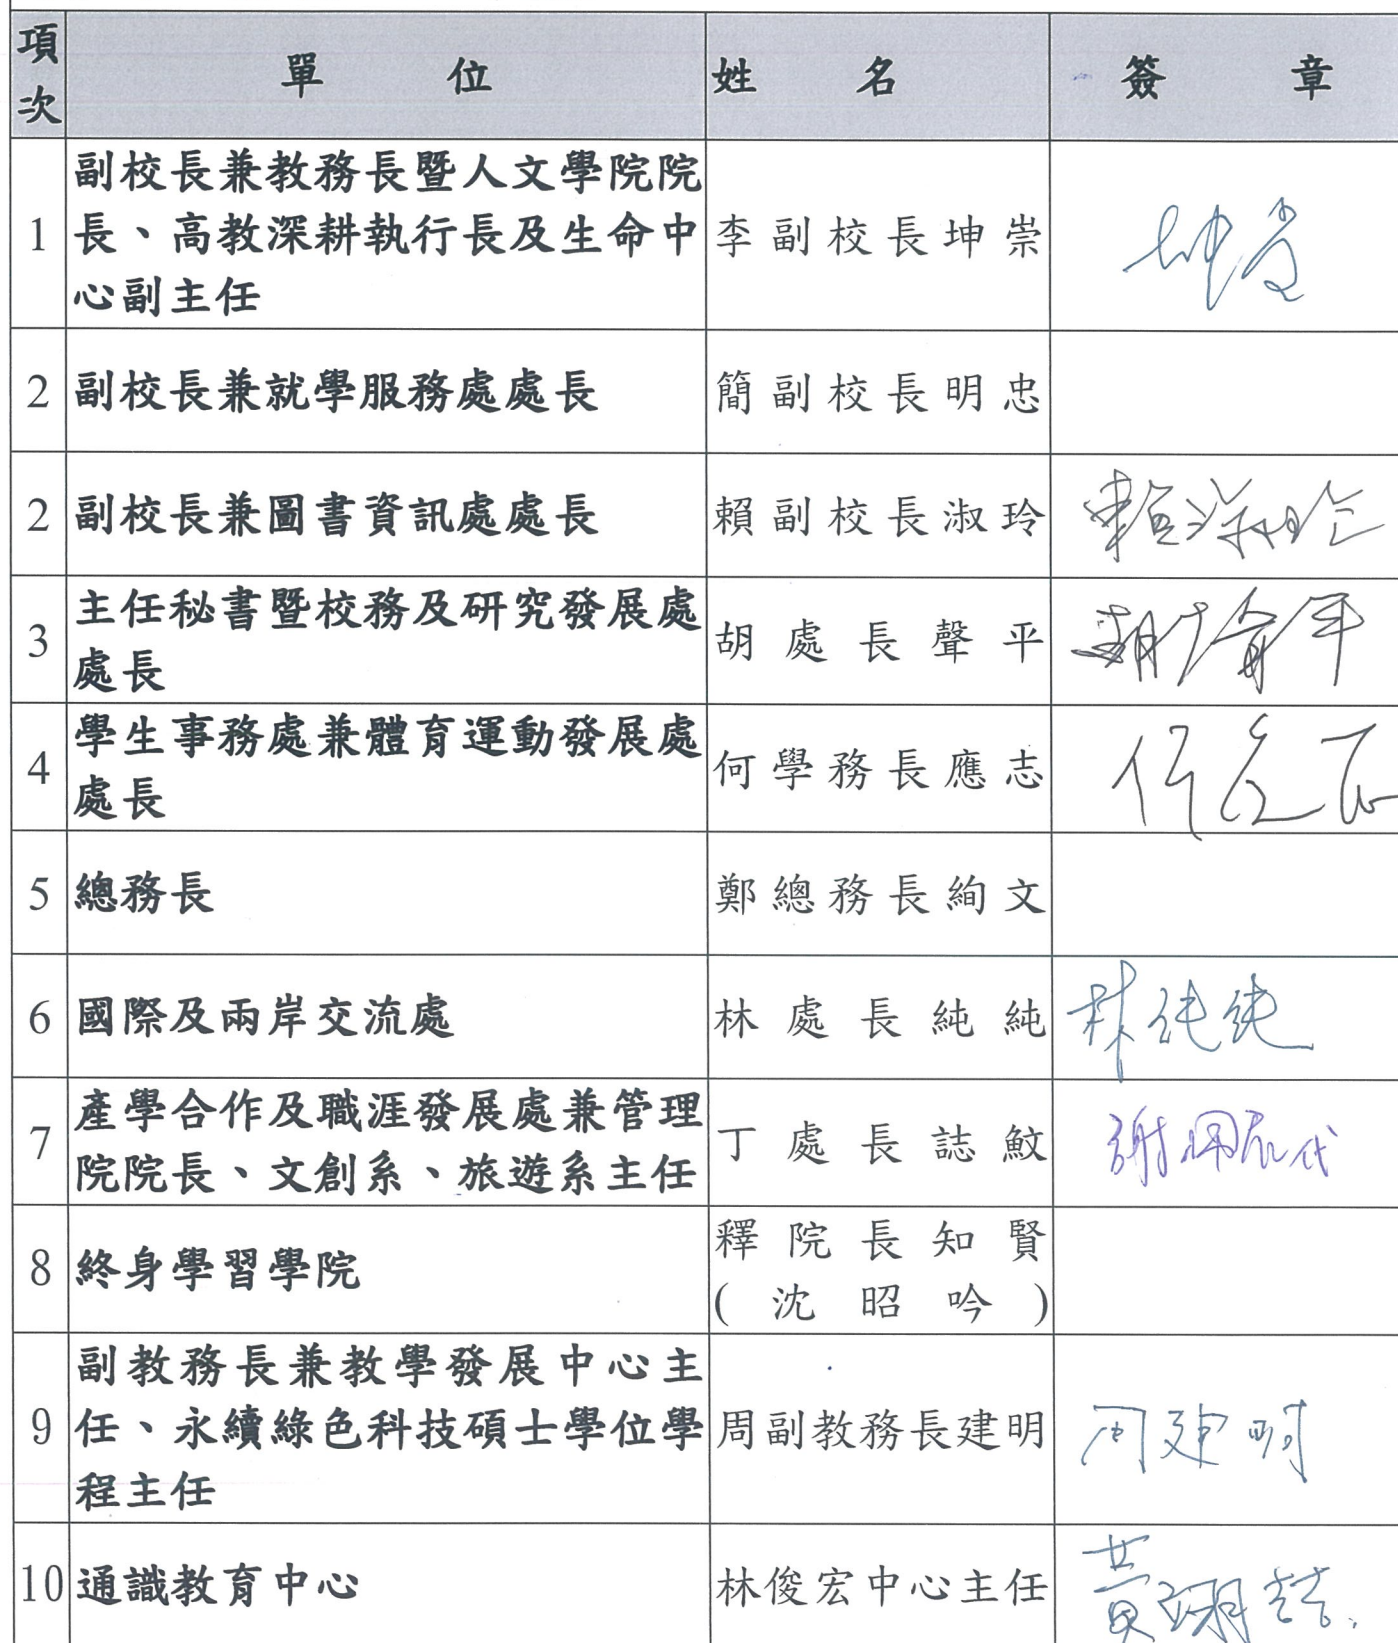 項次 單位 姓名 簽章
副校長兼教務長暨人文學院院
1 長、高教深耕執行長及生命中 李副校長坤崇 坤崇
心副主任
2 副校長兼就學服務處處長 簡副校長明忠
2 副校長兼圖書資訊處處長 賴副校長淑玲 賴淑玲
主任秘書暨校務及研究發展處
3 處長 胡處長聲平
學生事務處兼體育運動發展處
4 處長 何學務長應志
5 總務長 鄭總務長絢文
6 國際及兩岸交流處 林處長純純 林純純
產學合作及職涯發展處兼管理
7 院院長、文創系、旅遊系主任 丁處長誌魰 代
釋院長知賢
8 終身學習學院
(沈昭吟)
副教務長兼教學發展中心主
9 任、永續綠色科技碩士學位學 周副教務長建明 周建明
程主任
10 通識教育中心 林俊宏中心主任